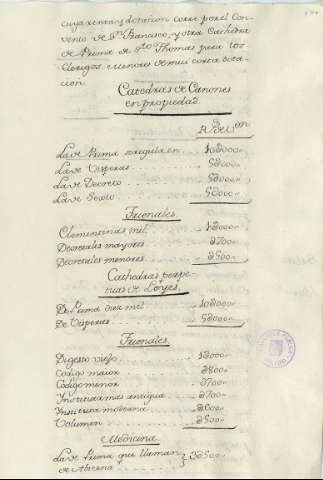 cuya renta y dotacion corre por el Con-
vento de Sⁿ Francisco, y otra Cathedra
de Prima de Sᵗᵒ Thomas para los
Clerigos Menores de muy corta dota-
cion.
Catedras de Canones
en propiedad.
Rˢ de Vᵒⁿ
La de Prima regula en 10⊍000
La de Visperas 5⊍000
La de Decreto 5⊍000
La de Sexto 5⊍000
Trienales.
Clementinas mil 1⊍000
Decretales mayores ⊍700
Decretales menores ⊍500
Cathedras perpe-
tuas de Leyes.
De Prima diez mil 10⊍000
De Visperas 5⊍000
Trienales.
Digesto viejo 1⊍000
Codigo maior ⊍800
Codigo menor ⊍700
Instituta mas antigua ⊍700
Instituta moderna ⊍600
Volumen ⊍500
Medicina
La de Prima que llaman
de Abicena 3⊍500